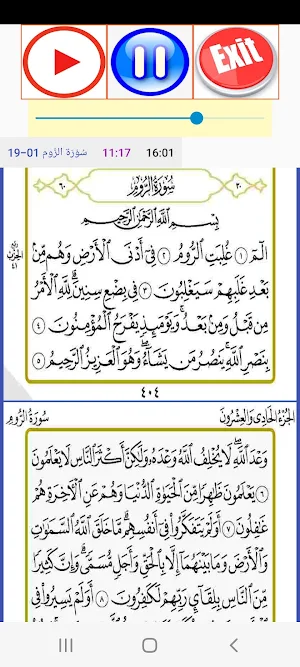 Exit
سُوۡرَة الرُّوم 01–19 11:17 16:01
٦٠ سُورَةُ الرُّومِ ٣٠
بِسْمِ ٱللَّهِ ٱلرَّحْمَٰنِ ٱلرَّحِيمِ
ربع
الحزب
٤١
الٓمٓ ۝١ غُلِبَتِ ٱلرُّومُ ۝٢ فِىٓ أَدْنَى ٱلْأَرْضِ وَهُم مِّنۢ
بَعْدِ غَلَبِهِمْ سَيَغْلِبُونَ ۝٣ فِى بِضْعِ سِنِينَ ۗ لِلَّهِ ٱلْأَمْرُ
مِن قَبْلُ وَمِنۢ بَعْدُ ۚ وَيَوْمَئِذٍ يَفْرَحُ ٱلْمُؤْمِنُونَ ۝٤
بِنَصْرِ ٱللَّهِ ۚ يَنصُرُ مَن يَشَآءُ ۖ وَهُوَ ٱلْعَزِيزُ ٱلرَّحِيمُ ۝٥
٤٠٤
الجُزْءُ الحَادِى وَالعِشْرُونَ سُورَةُ الرُّومِ
وَعْدَ ٱللَّهِ ۖ لَا يُخْلِفُ ٱللَّهُ وَعْدَهُۥ وَلَٰكِنَّ أَكْثَرَ ٱلنَّاسِ لَا يَعْلَمُونَ
۝٦ يَعْلَمُونَ ظَٰهِرًا مِّنَ ٱلْحَيَوٰةِ ٱلدُّنْيَا وَهُمْ عَنِ ٱلْءَاخِرَةِ هُمْ
غَٰفِلُونَ ۝٧ أَوَلَمْ يَتَفَكَّرُوا۟ فِىٓ أَنفُسِهِم ۗ مَّا خَلَقَ ٱللَّهُ ٱلسَّمَٰوَٰتِ
وَٱلْأَرْضَ وَمَا بَيْنَهُمَآ إِلَّا بِٱلْحَقِّ وَأَجَلٍ مُّسَمًّى ۗ وَإِنَّ كَثِيرًا
مِّنَ ٱلنَّاسِ بِلِقَآئِ رَبِّهِمْ لَكَٰفِرُونَ ۝٨ أَوَلَمْ يَسِيرُوا۟ فِى